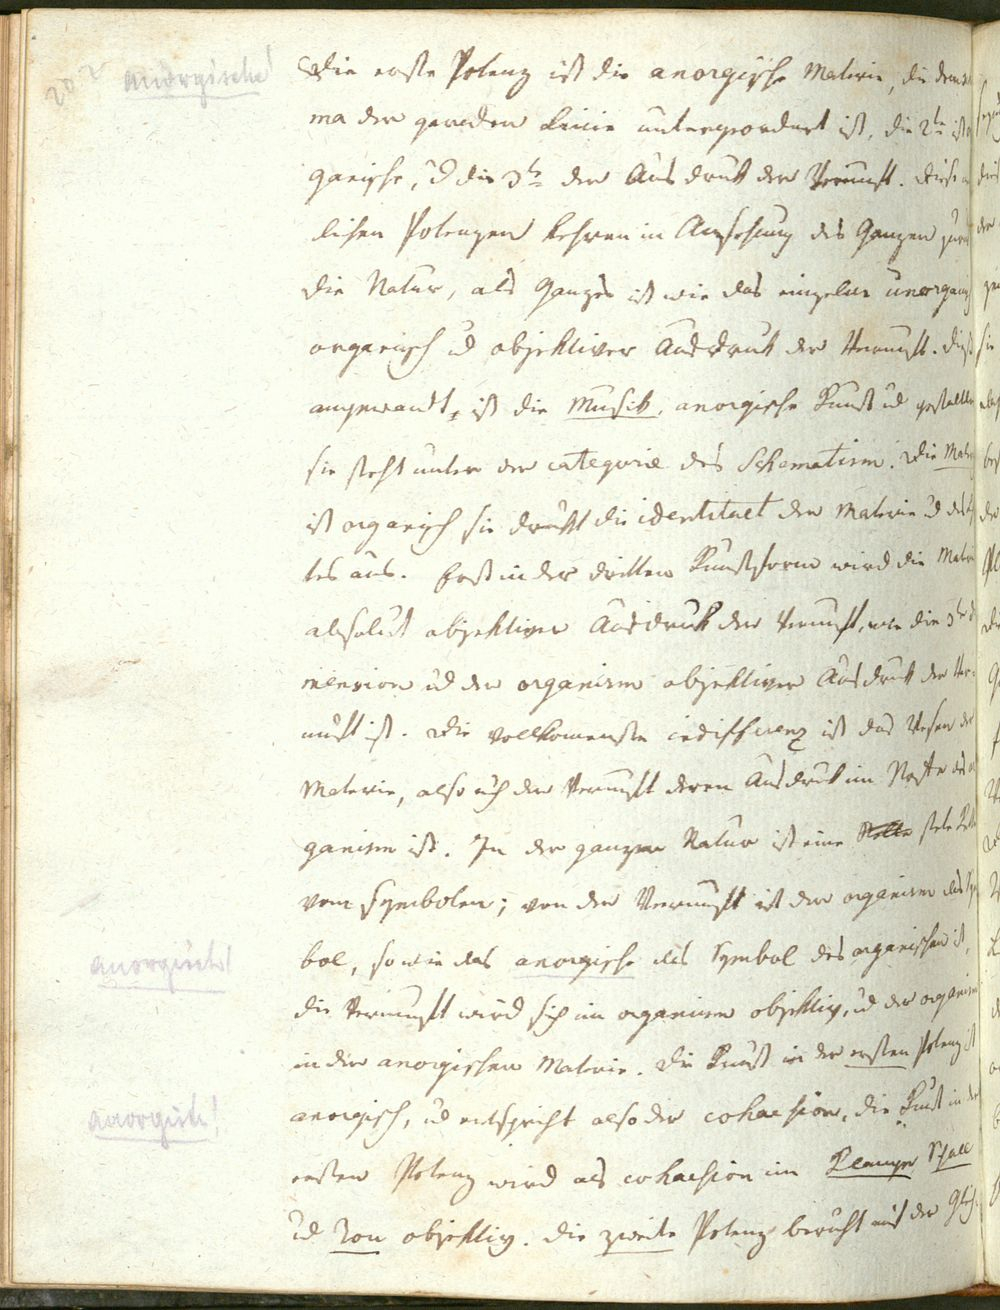 202 anorgische!
Die erste Potenz ist die anorgische Materie, die dem
ma der geraden Linie untergeordnet ist, die 2te ist
ganische, u die 3te der Ausdruk der Vernunft. Diese
lichen Potenzen kehren in Ansehung des Ganzen
die Natur, als Ganzes ist wie das einzelne unorgani
organisch u objektiver Ausdruk der Vernunft. Dieß
angewandt, ist die Musik, anorgische Kunst u
sie steht unter der categorie des Schematism. Die
ist organisch sie drukt die identitaet der Materie u des
tes aus. Erst in der dritten Kunstform wird die Materie
absolut objektiver Ausdruk der Vernunft, wie die 3te di
mension u der organism objektiver Ausdruk der Ver-
nunft ist. Die vollkomenste indifferenz ist das Wesen der
Materie, also auch der Vernunft deren Ausdruk im der
ganism ist. In der ganzen Natur ist eine Stelle stete
von Symbolen; von der Vernunft ist der organism das Sym
bol, so wie das anorgische das Symbol des organischen ist,
anorgisch!
die Vernunft wird sich im organism objektiv, u der organism
in der anorgischen Materie. Die Kunst in der ersten Potenz ist
anorgisch, u entspricht also der cohaesion, die Kunst in der
anorgisch!
ersten Potenz wird als cohaesion im Klange, Schall
u Ton objektiv. Die zweite Potenz beruht auf der